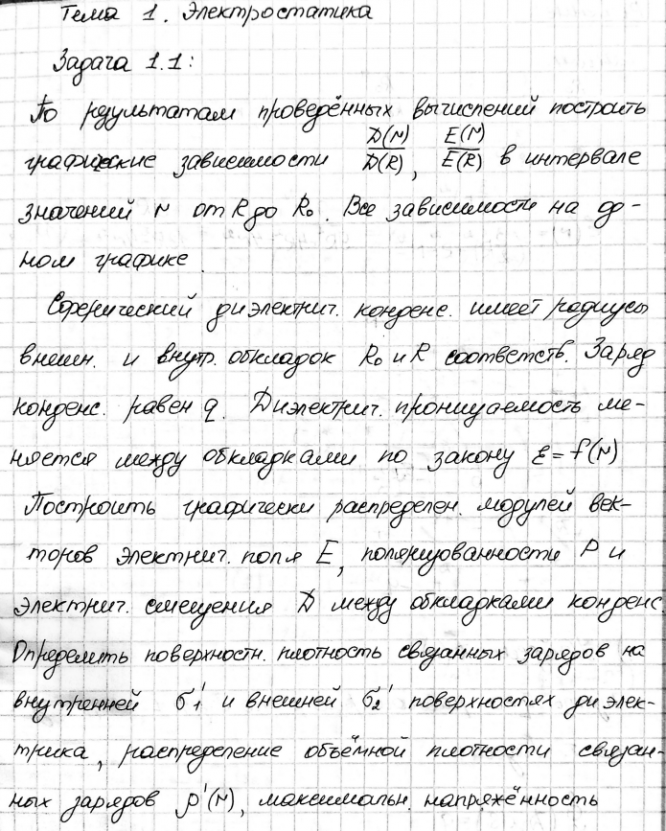 Тема 1. Электростатика
Задача 1.1:
По результатам проведённых вычислений построить
графические зависимости D(r)/D(R), E(r)/E(R) в интервале
значений r от R до R₀. Все зависимости на од-
ном графике.
Сферический диэлектрич. конденс. имеет радиусы
внешн. и внутр. обкладок R₀ и R соответств. Заряд
конденс. равен q. Диэлектрич. проницаемость ме-
няется между обкладками по закону ε = f(r)
Построить графически распределен. модулей век-
торов электрич. поля E, поляризованности P и
электрич. смещения D между обкладками конденс.
Определить поверхностн. плотность связанных зарядов на
внутренней σ₁' и внешней σ₂' поверхностях диэлек-
трика, распределение объёмной плотности связан-
ных зарядов ρ'(r), максимальн. напряжённость